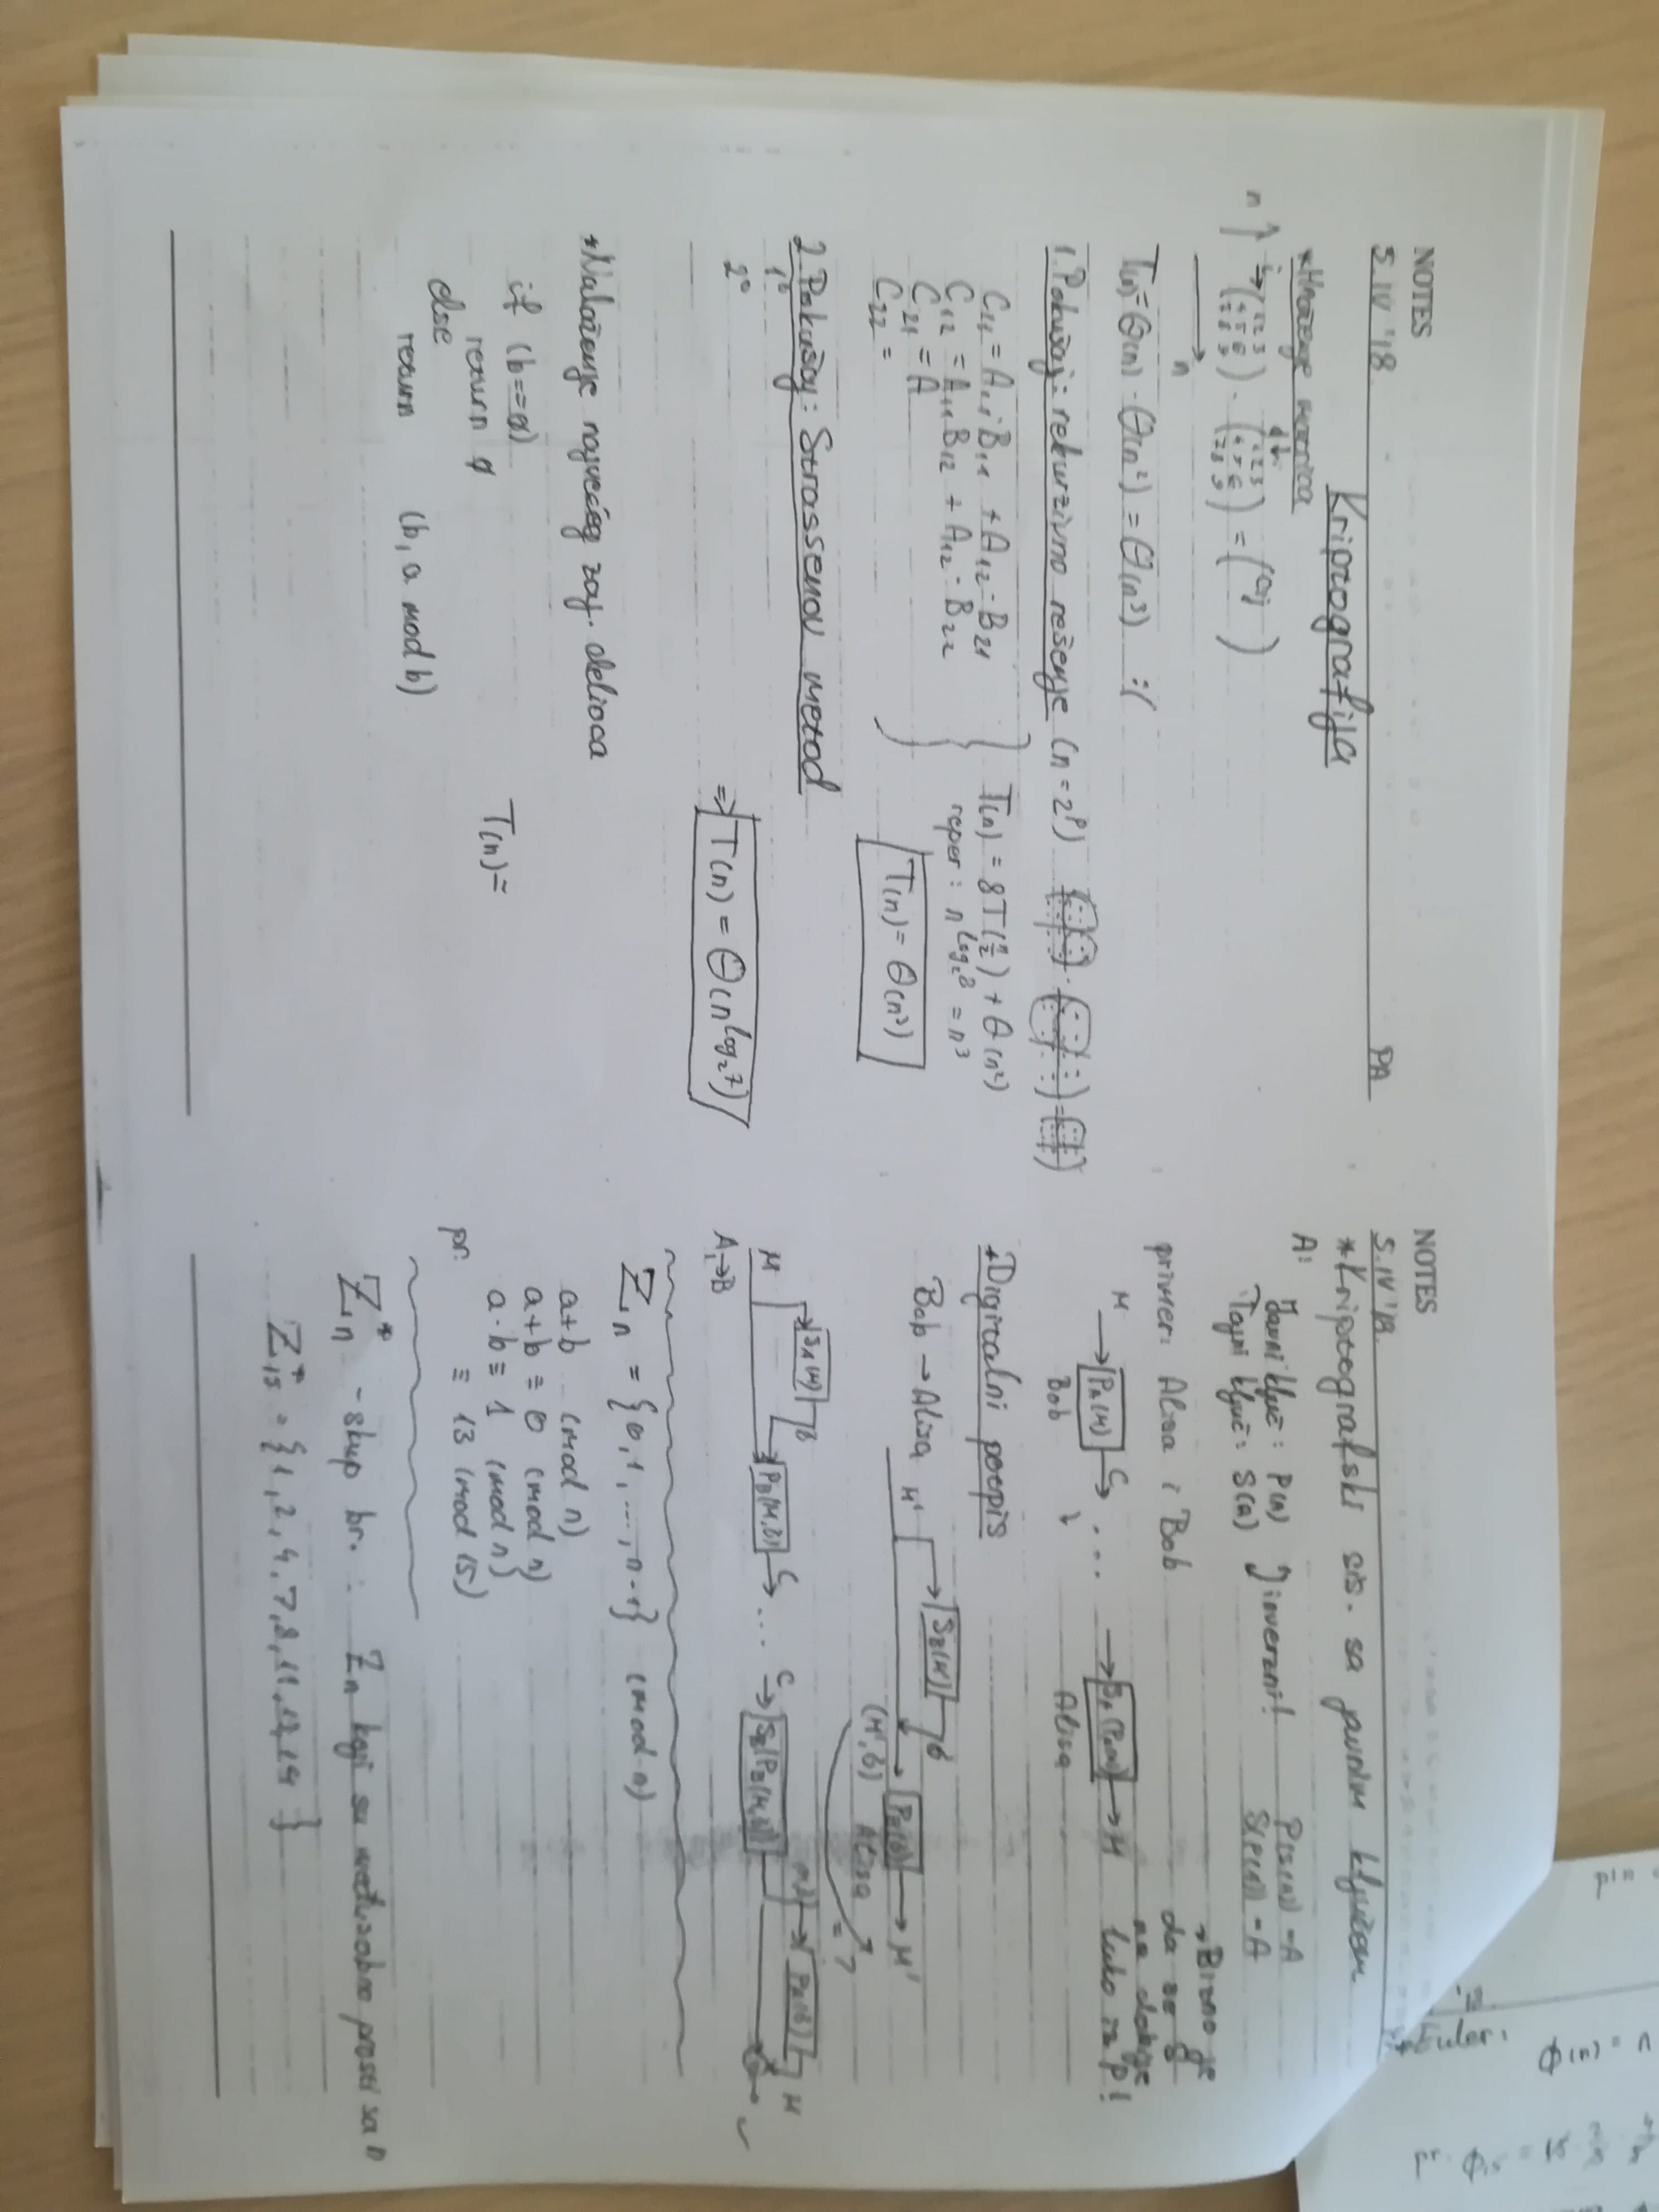 NOTES
5.IV '18 PA
Kriptografija
*Množenje matrica
n i j
(1 2 3 4 5 6 7 8 9) · (1 2 3 4 5 6 7 8 9) = (cij)
n
T(n) = Θ(n) · Θ(n²) = Θ(n³) :(
1. Pokušaj: rekurzivno rešenje (n = 2^p)
C11 = A11 · B11 + A12 · B21
C12 = A11 B12 + A12 · B22
C21 = A
C22 =
T(n) = 8T(n/2) + Θ(n²)
reper: n^log₂8 = n³
T(n) = Θ(n³)
2. Pokušaj: Strassenov metod
1°
2°
⇒ T(n) = Θ(n^log₂7)
*Nalaženje najvećeg zaj. delioca
if (b==0)
return 0
else
return (b, a mod b)
T(n)=
NOTES
5.IV '18.
*Kriptografski sis. sa javnim ključem
A:
Javni ključ: P(A) } inverzni! P(S(A)) = A
Tajni ključ: S(A) S(P(A)) = A
→ Bitno je
da se S
ne dobije
lako iz P!
primer: Alisa i Bob
M → PA(M) → C ... → SA(PA(M)) → M
Bob Alisa
*Digitalni potpis
Bob → Alisa M' SB(M') δ
PB(δ) → M'
(M', δ) Alisa
= ?
M SA(M) δ PB(M,δ) C ... C → SB(PB(M,δ)) PA(δ) M
A → B
Zn = {0, 1, ..., n-1} (mod n)
a+b (mod n)
a+b ≡ 0 (mod n)
a·b ≡ 1 (mod n)
pr. ≡ 13 (mod 15)
Zn* - skup br. : Zn koji su međusobno prosti sa n
Z15* = {1, 2, 4, 7, 8, 11, 13, 14 }
'18
*Euler: φ(n) = n
pr. φ15 = 15